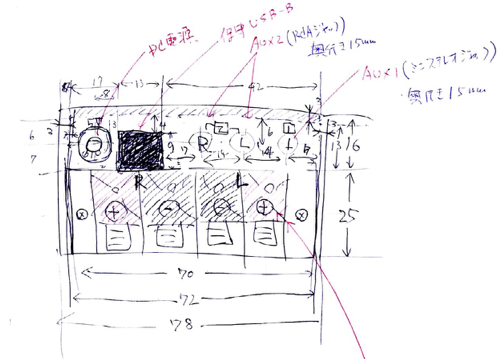 DC電源
USB-B
AUX2 (RCAジャック)
奥行き15mm
AUX1 (ミニステレオジャック)
奥行き15mm
17
13
42
3
6
7
9
R
L
6
13
16
14
R
L
25
+
-
-
+
70
72
78